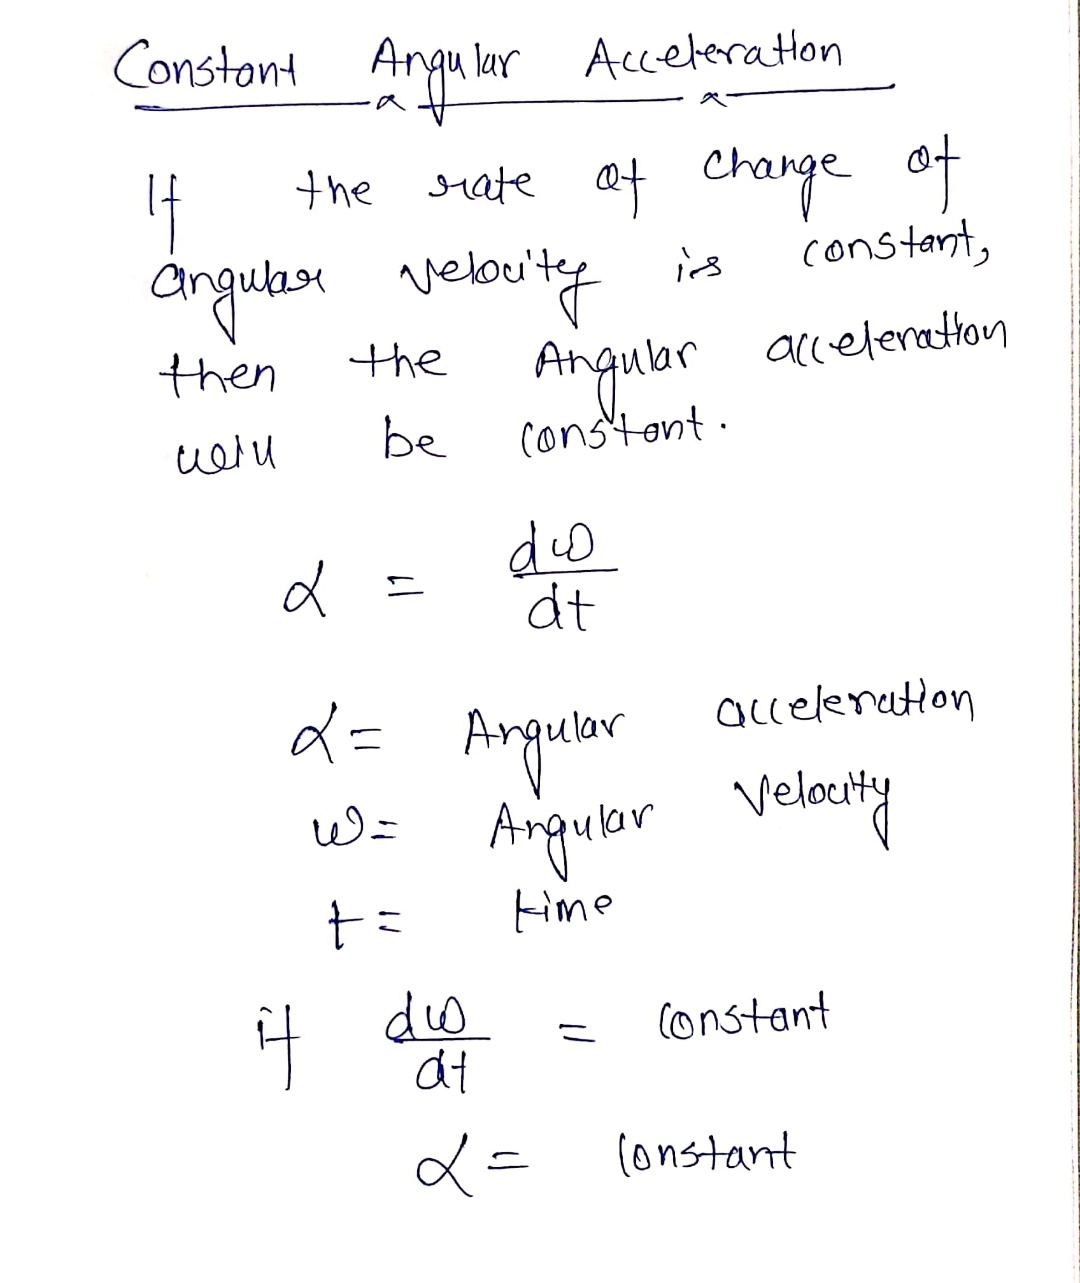 Constant Angular Acceleration
If the rate of change of
angular velocity is constant,
then the Angular acceleration
will be constant.
α = dω
dt
α = Angular acceleration
ω = Angular Velocity
t = time
if dω = constant
dt
α = constant